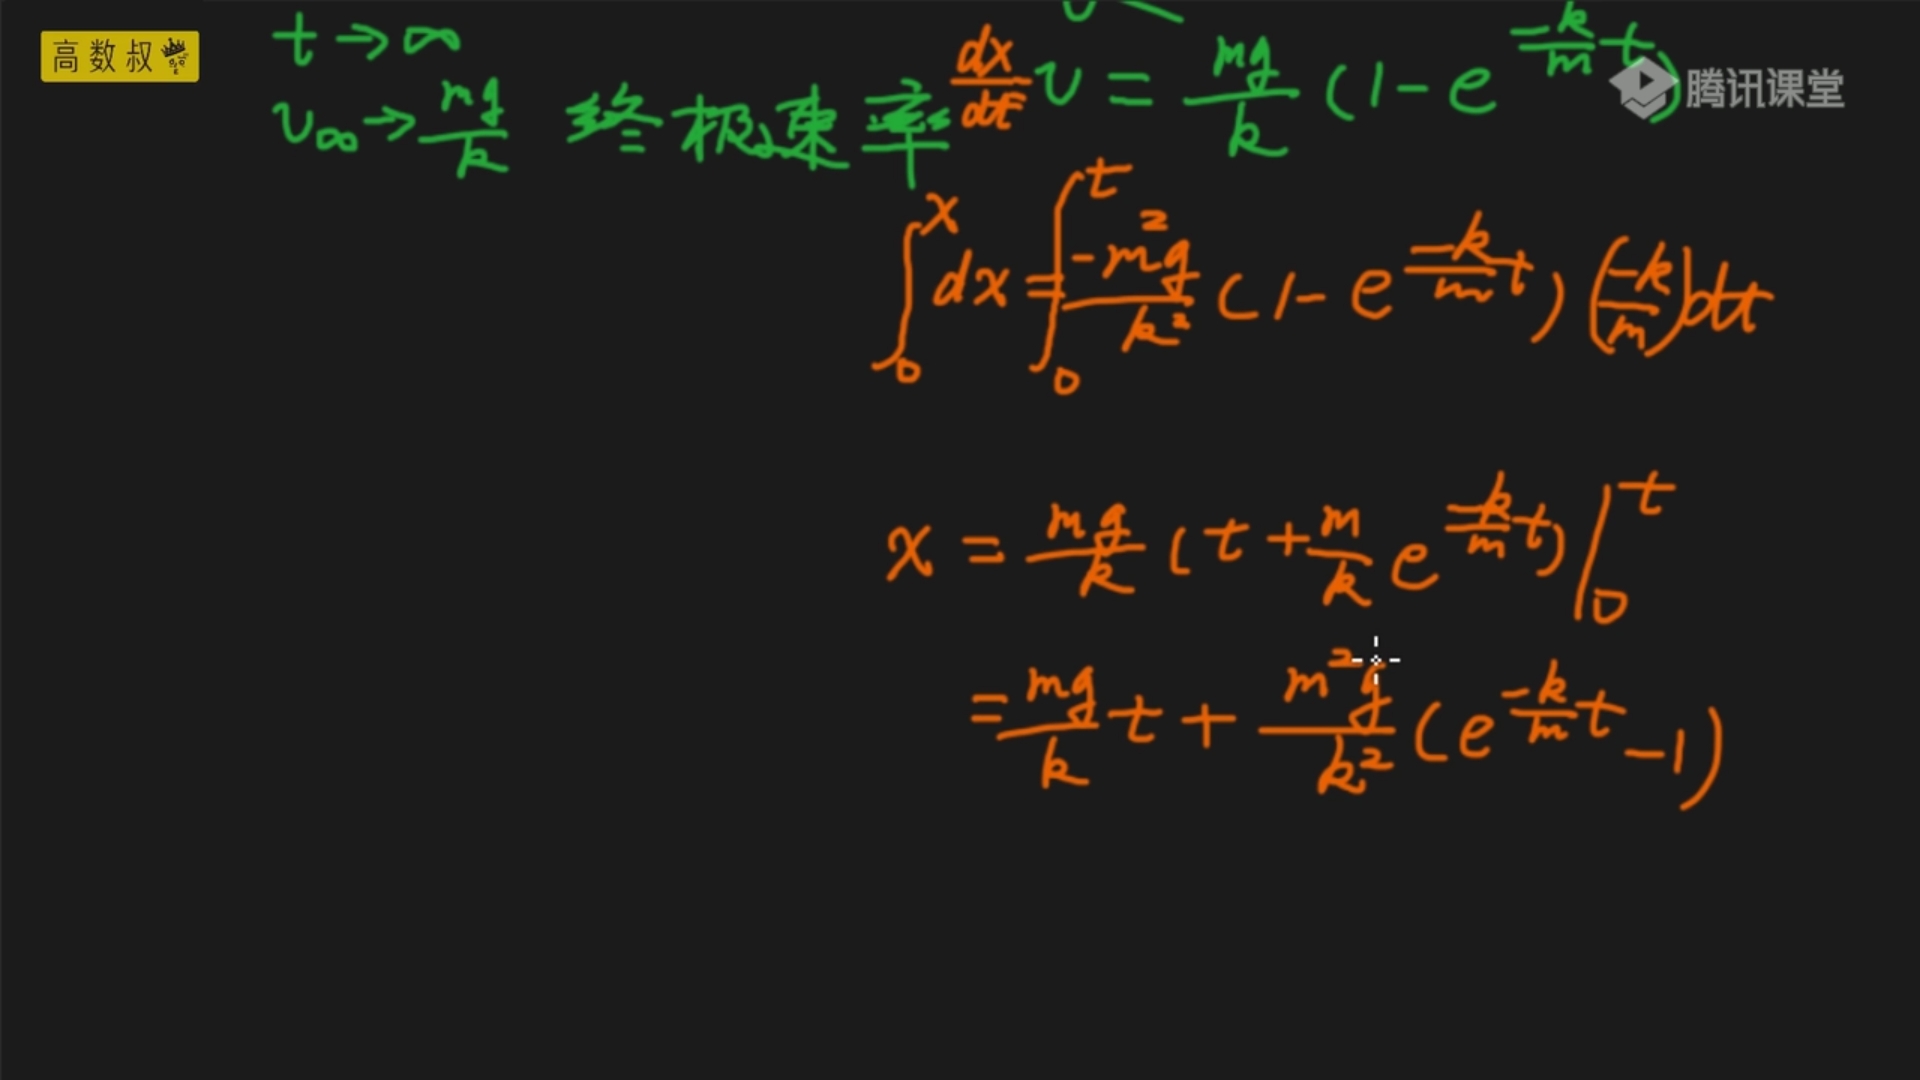 高数叔
腾讯课堂
t→∞
v∞→mg/k 终极速率
dx/dt v = mg/k (1-e^(-k/m t))
∫₀ˣ dx = ∫₀ᵗ -m²g/k² (1-e^(-k/m t)) (-k/m) dt
x = mg/k (t + m/k e^(-k/m t)) |₀ᵗ
= mg/k t + m²g/k² (e^(-k/m t) -1)